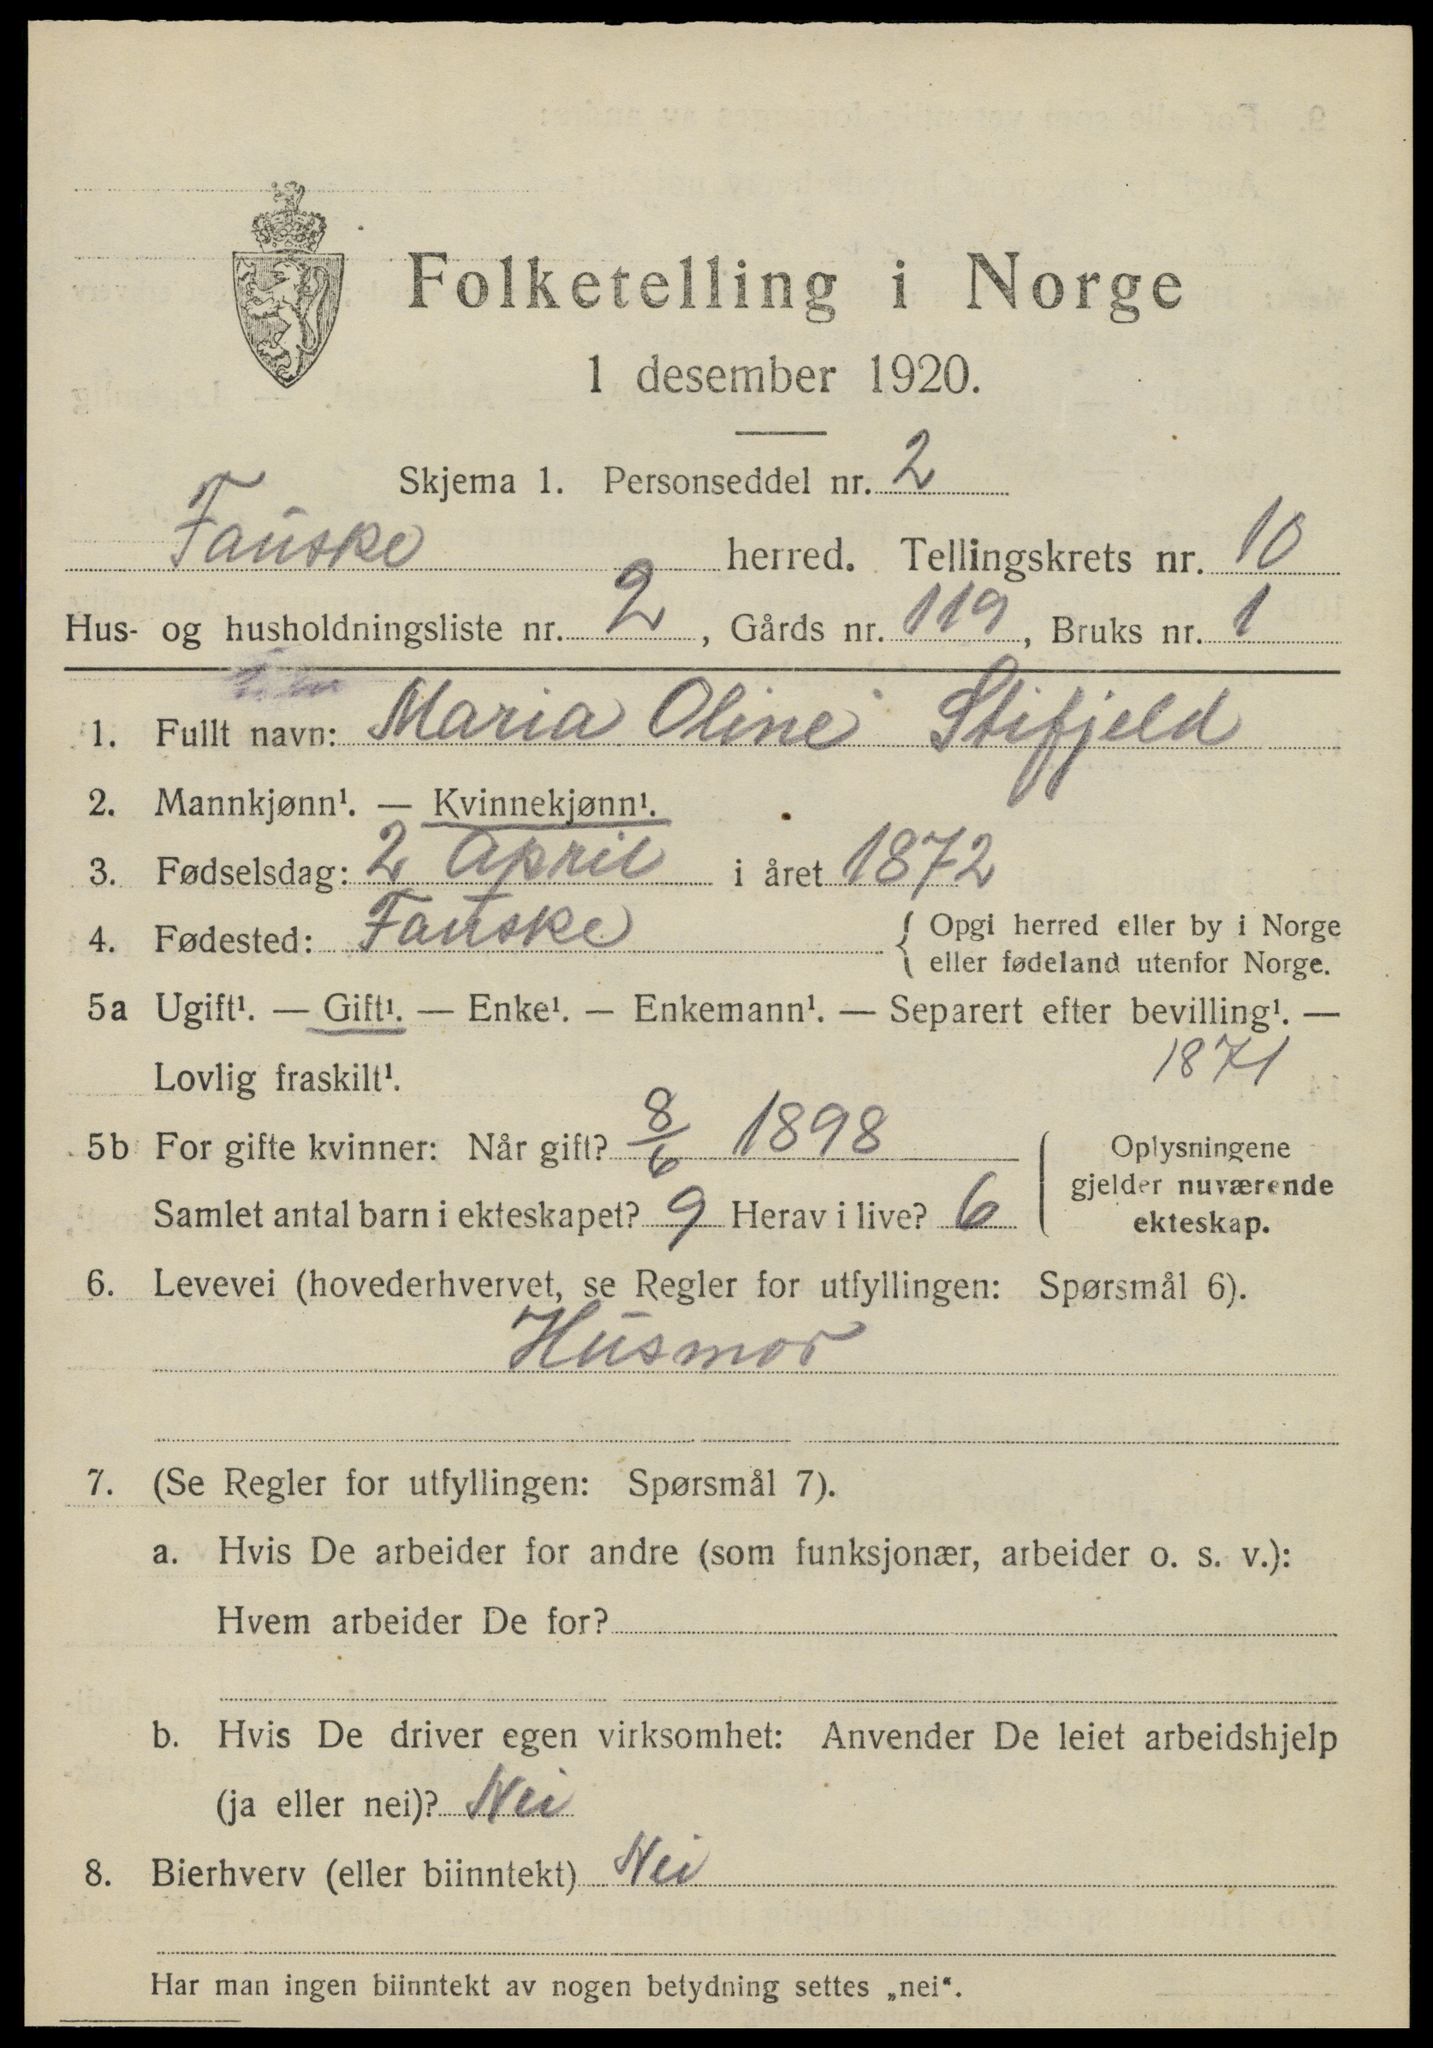 Folketelling i Norge
1 desember 1920.
Skjema 1. Personseddel nr. 2
Fauske herred. Tellingskrets nr. 10
Hus- og husholdningsliste nr. 2, Gårds nr. 119, Bruks nr. 1
1. Fullt navn: Maria Oline Stifjeld
2. Mannkjønn¹. — Kvinnekjønn¹.
3. Fødselsdag: 2 April i året 1872
4. Fødested: Fauske { Opgi herred eller by i Norge
eller fødeland utenfor Norge.
5a Ugift¹. — Gift¹. — Enke¹. — Enkemann¹. — Separert efter bevilling¹. —
Lovlig fraskilt¹. 1871
5b For gifte kvinner: Når gift? 8/6 1898
Samlet antal barn i ekteskapet? 9 Herav i live? 6
Oplysningene
gjelder nuværende
ekteskap.
6. Levevei (hovederhvervet, se Regler for utfyllingen: Spørsmål 6).
Husmor
7. (Se Regler for utfyllingen: Spørsmål 7).
a. Hvis De arbeider for andre (som funksjonær, arbeider o. s. v.):
Hvem arbeider De for?
b. Hvis De driver egen virksomhet: Anvender De leiet arbeidshjelp
(ja eller nei)? Nei
8. Bierhverv (eller biinntekt) Nei
Har man ingen biinntekt av nogen betydning settes „nei“.